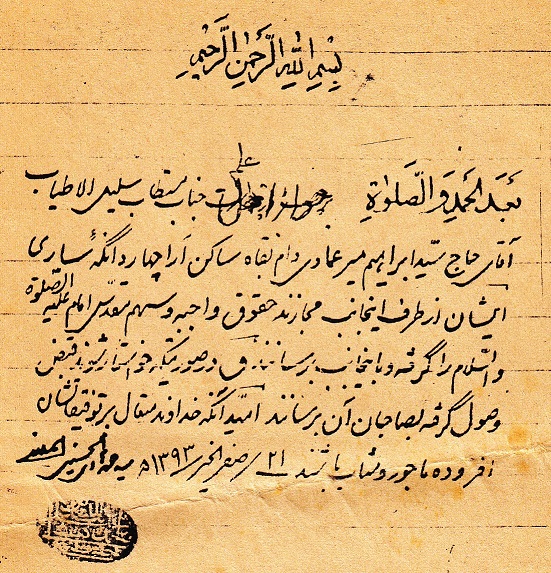 بِسْمِ اللهِ الرَّحْمنِ الرَّحيمِ
بَعْدَ الْحَمْدِ وَالصَّلوةِ جناب مستطاب سلیل الاطیاب
آقای حاج سیّد ابراهیم میرعمادی دام بقاه ساکن اراچهاردانگهٔ ساری
ایشان از طرف اینجانب مجازند حقوق واجبه و سهم مقدّس امام علیه الصّلوة
والسّلام را گرفته و باینجانب برسانند و در صورتیکه خواستار شوند قبض
وصول گرفته بصاحبان آن برسانند امّید آنکه خداوند متعال بر توفیقاتشان
افزوده ماجور و مثاب باشند ۲۱/صفر الخیر/۱۳۹۳ه